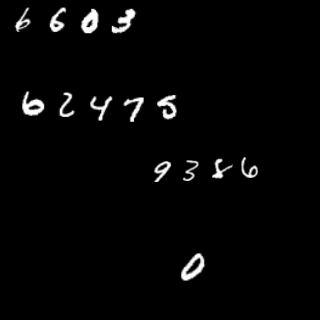 6603
62475
9386
0